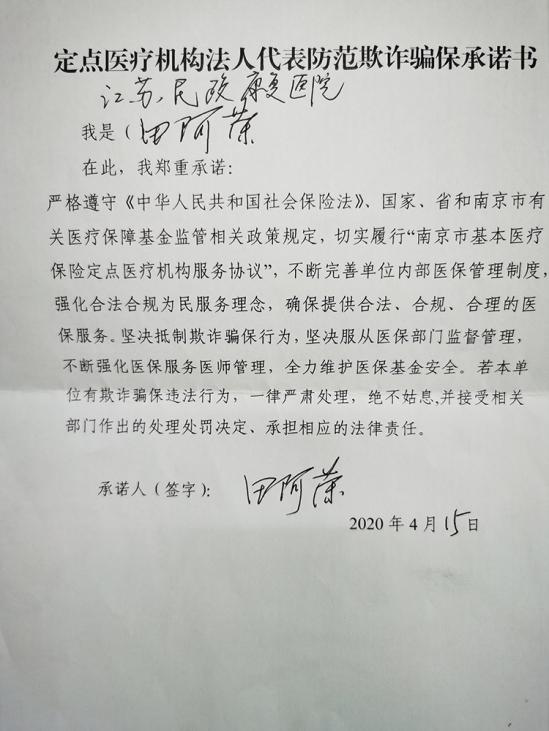 定点医疗机构法人代表防范欺诈骗保承诺书
江苏民政康复医院
我是（田阿荣
在此，我郑重承诺：
严格遵守《中华人民共和国社会保险法》、国家、省和南京市有
关医疗保障基金监管相关政策规定，切实履行“南京市基本医疗
保险定点医疗机构服务协议”，不断完善单位内部医保管理制度，
强化合法合规为民服务理念，确保提供合法、合规、合理的医
保服务。坚决抵制欺诈骗保行为，坚决服从医保部门监督管理，
不断强化医保服务医师管理，全力维护医保基金安全。若本单
位有欺诈骗保违法行为，一律严肃处理，绝不姑息,并接受相关
部门作出的处理处罚决定、承担相应的法律责任。
承诺人（签字）：田阿荣
2020年4月15日